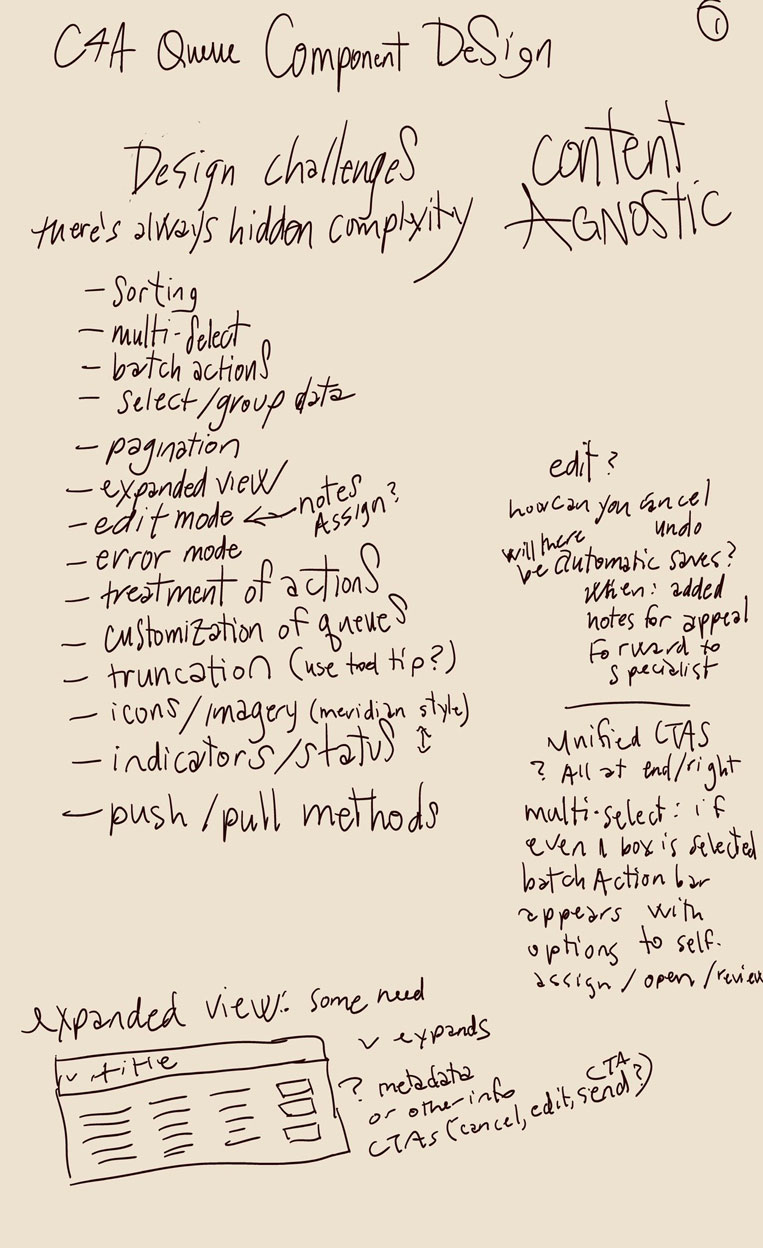 C4A Queue Component Design
1
Design challenges
there's always hidden complxity
content
AGNOSTIC
- Sorting
- multi-select
- batch actions
- select/group data
- pagination
- expanded view
- edit mode ← notes
Assign?
- error mode
- treatment of actions
- customization of queues
- truncation (use tool tip?)
- icons/imagery (meridian style)
- indicators/status ↕
- push/pull methods
edit?
how can you cancel
undo
will there
be automatic saves?
when: added
notes for appeal
Forward to
specialist
Unified CTAS
? All at end/right
multi-select: if
even 1 box is selected
batch Action bar
appears with
options to self.
assign/open/review
expanded view: some need
v expands
v title
? metadata
or other info
CTA
CTAs (cancel, edit, send?)